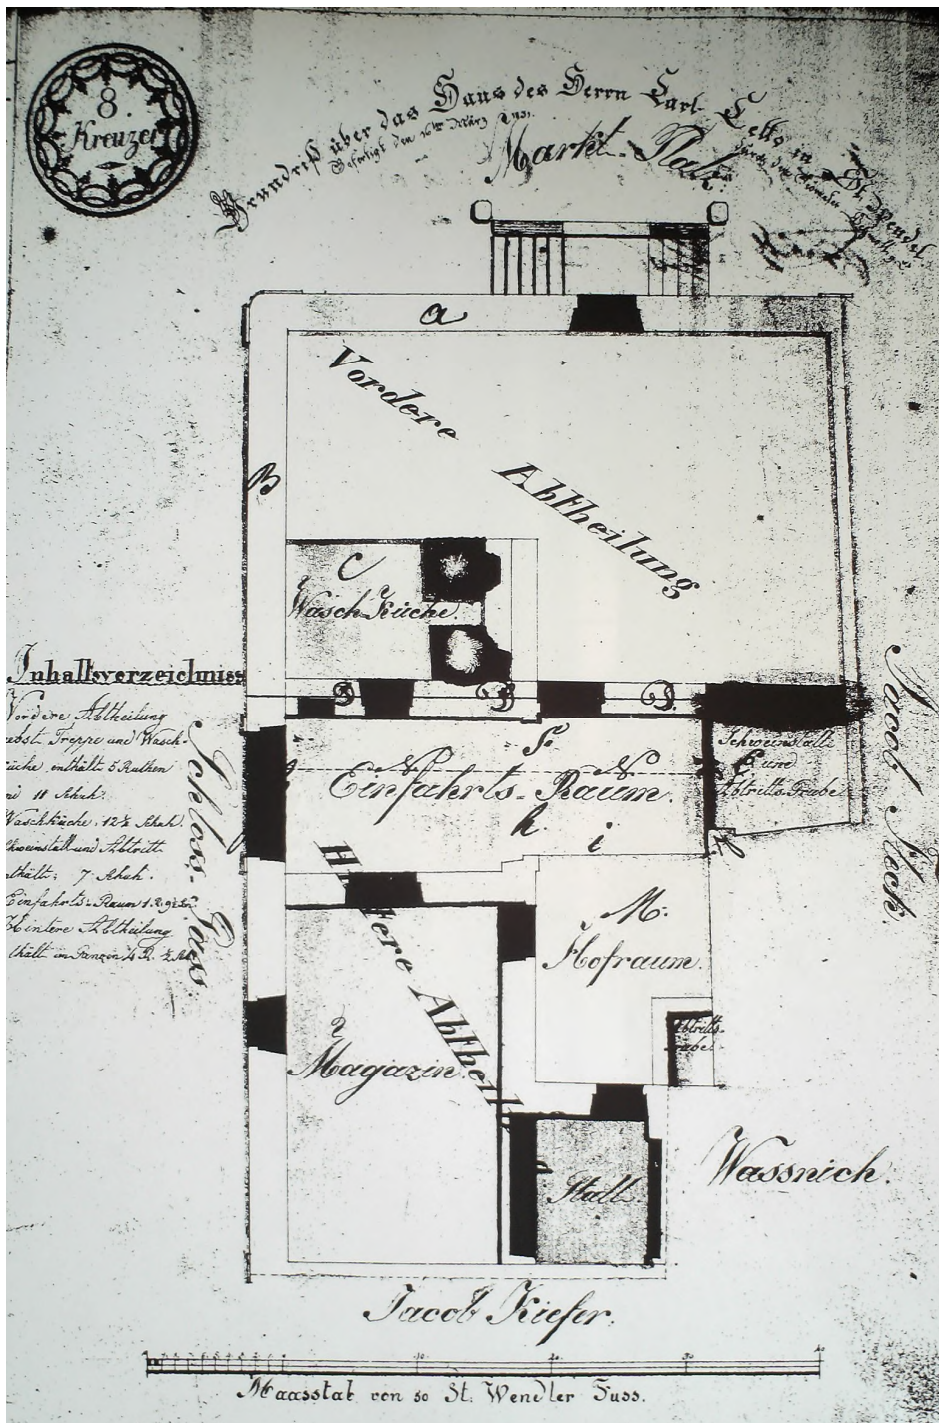 8.
Kreuzer
Grundriß über das Haus des Herrn Carl Cetto in St. Wendel.
Gefertigt den März
Markt-Platz.
a
Vordere Abtheilung
B
C
Wasch Küche.
Inhaltsverzeichniss
Vordere Abtheilung
nebst Treppe und Wasch-
küche enthält 5 Ruthen
11 Schuh.
Waschküche. 12½ Schuh.
Schweinstall und Abtritt
enthält: 7 Schuh.
Einfahrts-Raum
Hintere Abtheilung
Schloss-Gass.
Jacob
Schweinstall
und
Abtritts-Grube
Einfahrts-Raum.
h.
i
k
Hintere Abtheil
M.
Hofraum.
Abtritts-
Magazin
Stall.
Wassnich.
Jacob Kiefer.
10 20 30 40
Maasstab von 50 St. Wendler Fuss.